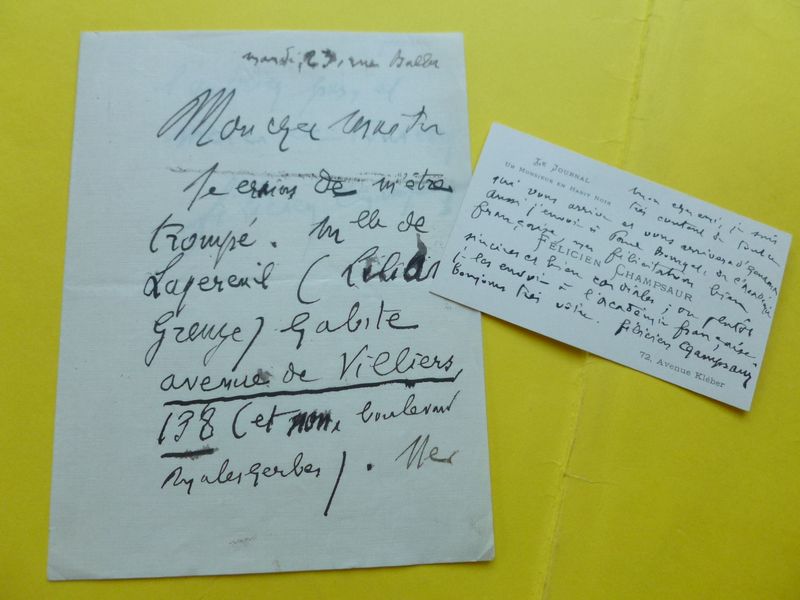 mardi, 23, rue
Mon cher maître
Je crains de m'être
trompé. Mlle de
(Lilias
Greuze) habite
avenue de Villiers,
138 (et non, boulevard
Malesherbes). Mer
Le Journal
Un Monsieur en Habit Noir
mon cher ami, je suis
très content de tout ce
qui vous arrive et vous arrivera d'
aussi j'envoie à Paul Bourget, de l'Académie
française, mes félicitations bien
Félicien Champsaur
sincères et bien cordiales ; ou plutôt
je les envoie à l'académie française.
toujours très vôtre. Félicien Champsaur
72, Avenue Kléber